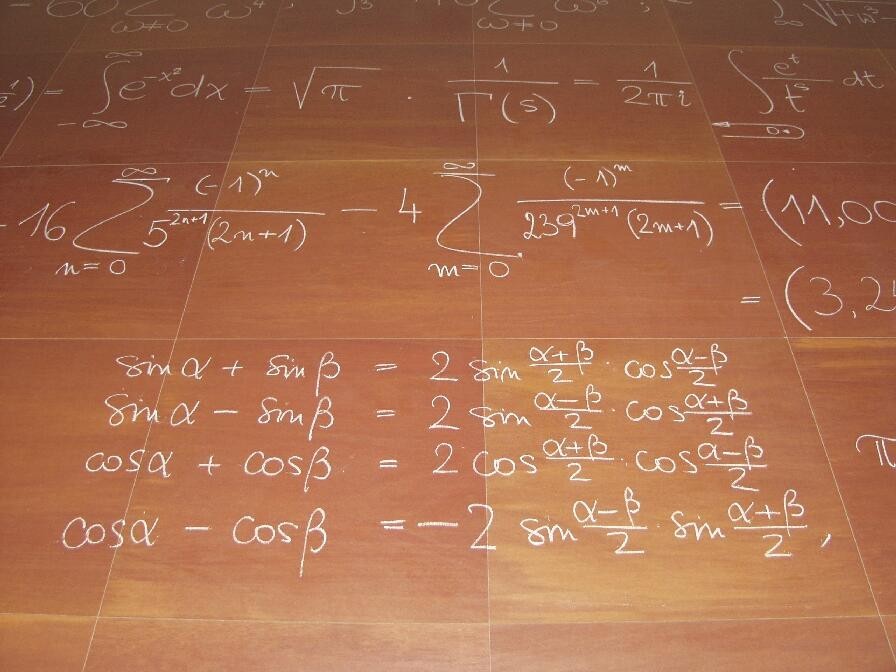 60 ∑ ω≠0 ω⁴, ∑ ω≠0 ω⁶; ∫ ∞
½) = ∫_{-∞}^{∞} e^{-x²} dx = √π · 1/Γ(s) = 1/(2πi) ∫ e^t/t^s dt
16 ∑_{n=0}^{∞} (-1)^n/(5^{2n+1}(2n+1)) - 4 ∑_{m=0}^{∞} (-1)^m/(239^{2m+1}(2m+1)) = (11,00
= (3,2
sin α + sin β = 2 sin (α+β)/2 · cos (α-β)/2
sin α - sin β = 2 sin (α-β)/2 · cos (α+β)/2
cos α + cos β = 2 cos (α+β)/2 · cos (α-β)/2
π
cos α - cos β = -2 sin (α-β)/2 · sin (α+β)/2,